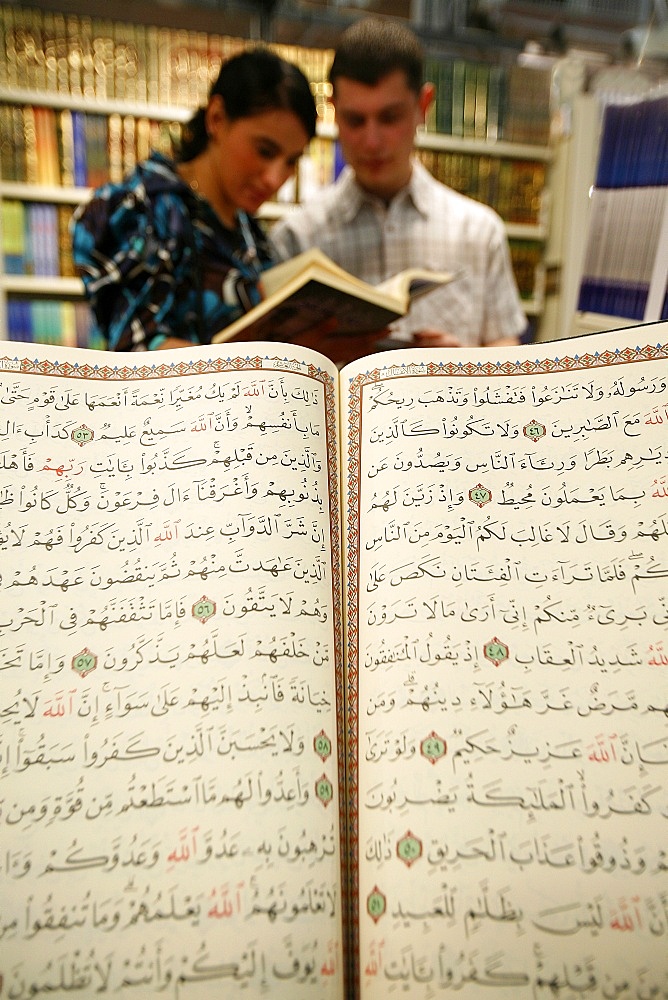 وَرَسُولَهُۥ وَلَا تَنَٰزَعُوا۟ فَتَفْشَلُوا۟ وَتَذْهَبَ رِيحُكُمْ ۖ
ٱللَّهَ مَعَ ٱلصَّٰبِرِينَ ٤٦ وَلَا تَكُونُوا۟ كَٱلَّذِينَ
دِيَٰرِهِم بَطَرًا وَرِئَآءَ ٱلنَّاسِ وَيَصُدُّونَ عَن
ٱللَّهُ بِمَا يَعْمَلُونَ مُحِيطٌ ٤٧ وَإِذْ زَيَّنَ لَهُمُ
وَقَالَ لَا غَالِبَ لَكُمُ ٱلْيَوْمَ مِنَ ٱلنَّاسِ
فَلَمَّا تَرَآءَتِ ٱلْفِئَتَانِ نَكَصَ عَلَىٰ
بَرِىٓءٌ مِّنكُمْ إِنِّىٓ أَرَىٰ مَا لَا تَرَوْنَ
ٱللَّهُ شَدِيدُ ٱلْعِقَابِ ٤٨ إِذْ يَقُولُ ٱلْمُنَٰفِقُونَ
مَّرَضٌ غَرَّ هَٰٓؤُلَآءِ دِينُهُمْ ۗ وَمَن
فَإِنَّ ٱللَّهَ عَزِيزٌ حَكِيمٌ ٤٩ وَلَوْ تَرَىٰٓ
كَفَرُوا۟ ۙ ٱلْمَلَٰٓئِكَةُ يَضْرِبُونَ
وَذُوقُوا۟ عَذَابَ ٱلْحَرِيقِ ٥٠ ذَٰلِكَ
ٱللَّهَ لَيْسَ بِظَلَّٰمٍ لِّلْعَبِيدِ ٥١
مِن قَبْلِهِمْ ۚ كَفَرُوا۟ بِـَٔايَٰتِ ٱللَّهِ
ذَٰلِكَ بِأَنَّ ٱللَّهَ لَمْ يَكُ مُغَيِّرًا نِّعْمَةً أَنْعَمَهَا عَلَىٰ قَوْمٍ حَتَّىٰ
مَا بِأَنفُسِهِمْ ۙ وَأَنَّ ٱللَّهَ سَمِيعٌ عَلِيمٌ ٥٣ كَدَأْبِ ءَالِ
وَٱلَّذِينَ مِن قَبْلِهِمْ ۚ كَذَّبُوا۟ بِـَٔايَٰتِ رَبِّهِمْ
بِذُنُوبِهِمْ وَأَغْرَقْنَآ ءَالَ فِرْعَوْنَ ۚ وَكُلٌّ كَانُوا۟
إِنَّ شَرَّ ٱلدَّوَآبِّ عِندَ ٱللَّهِ ٱلَّذِينَ كَفَرُوا۟ فَهُمْ
ٱلَّذِينَ عَٰهَدتَّ مِنْهُمْ ثُمَّ يَنقُضُونَ عَهْدَهُمْ فِى
وَهُمْ لَا يَتَّقُونَ ٥٦ فَإِمَّا تَثْقَفَنَّهُمْ فِى ٱلْحَرْبِ
مَّنْ خَلْفَهُمْ لَعَلَّهُمْ يَذَّكَّرُونَ ٥٧ وَإِمَّا
خِيَانَةً فَٱنۢبِذْ إِلَيْهِمْ عَلَىٰ سَوَآءٍ ۚ إِنَّ ٱللَّهَ لَا
٥٨ وَلَا يَحْسَبَنَّ ٱلَّذِينَ كَفَرُوا۟ سَبَقُوٓا۟ ۚ
٥٩ وَأَعِدُّوا۟ لَهُم مَّا ٱسْتَطَعْتُم مِّن قُوَّةٍ وَمِن
تُرْهِبُونَ بِهِۦ عَدُوَّ ٱللَّهِ وَعَدُوَّكُمْ
لَا تَعْلَمُونَهُمُ ٱللَّهُ يَعْلَمُهُمْ ۚ وَمَا تُنفِقُوا۟ مِن
ٱللَّهِ يُوَفَّ إِلَيْكُمْ وَأَنتُمْ لَا تُظْلَمُونَ